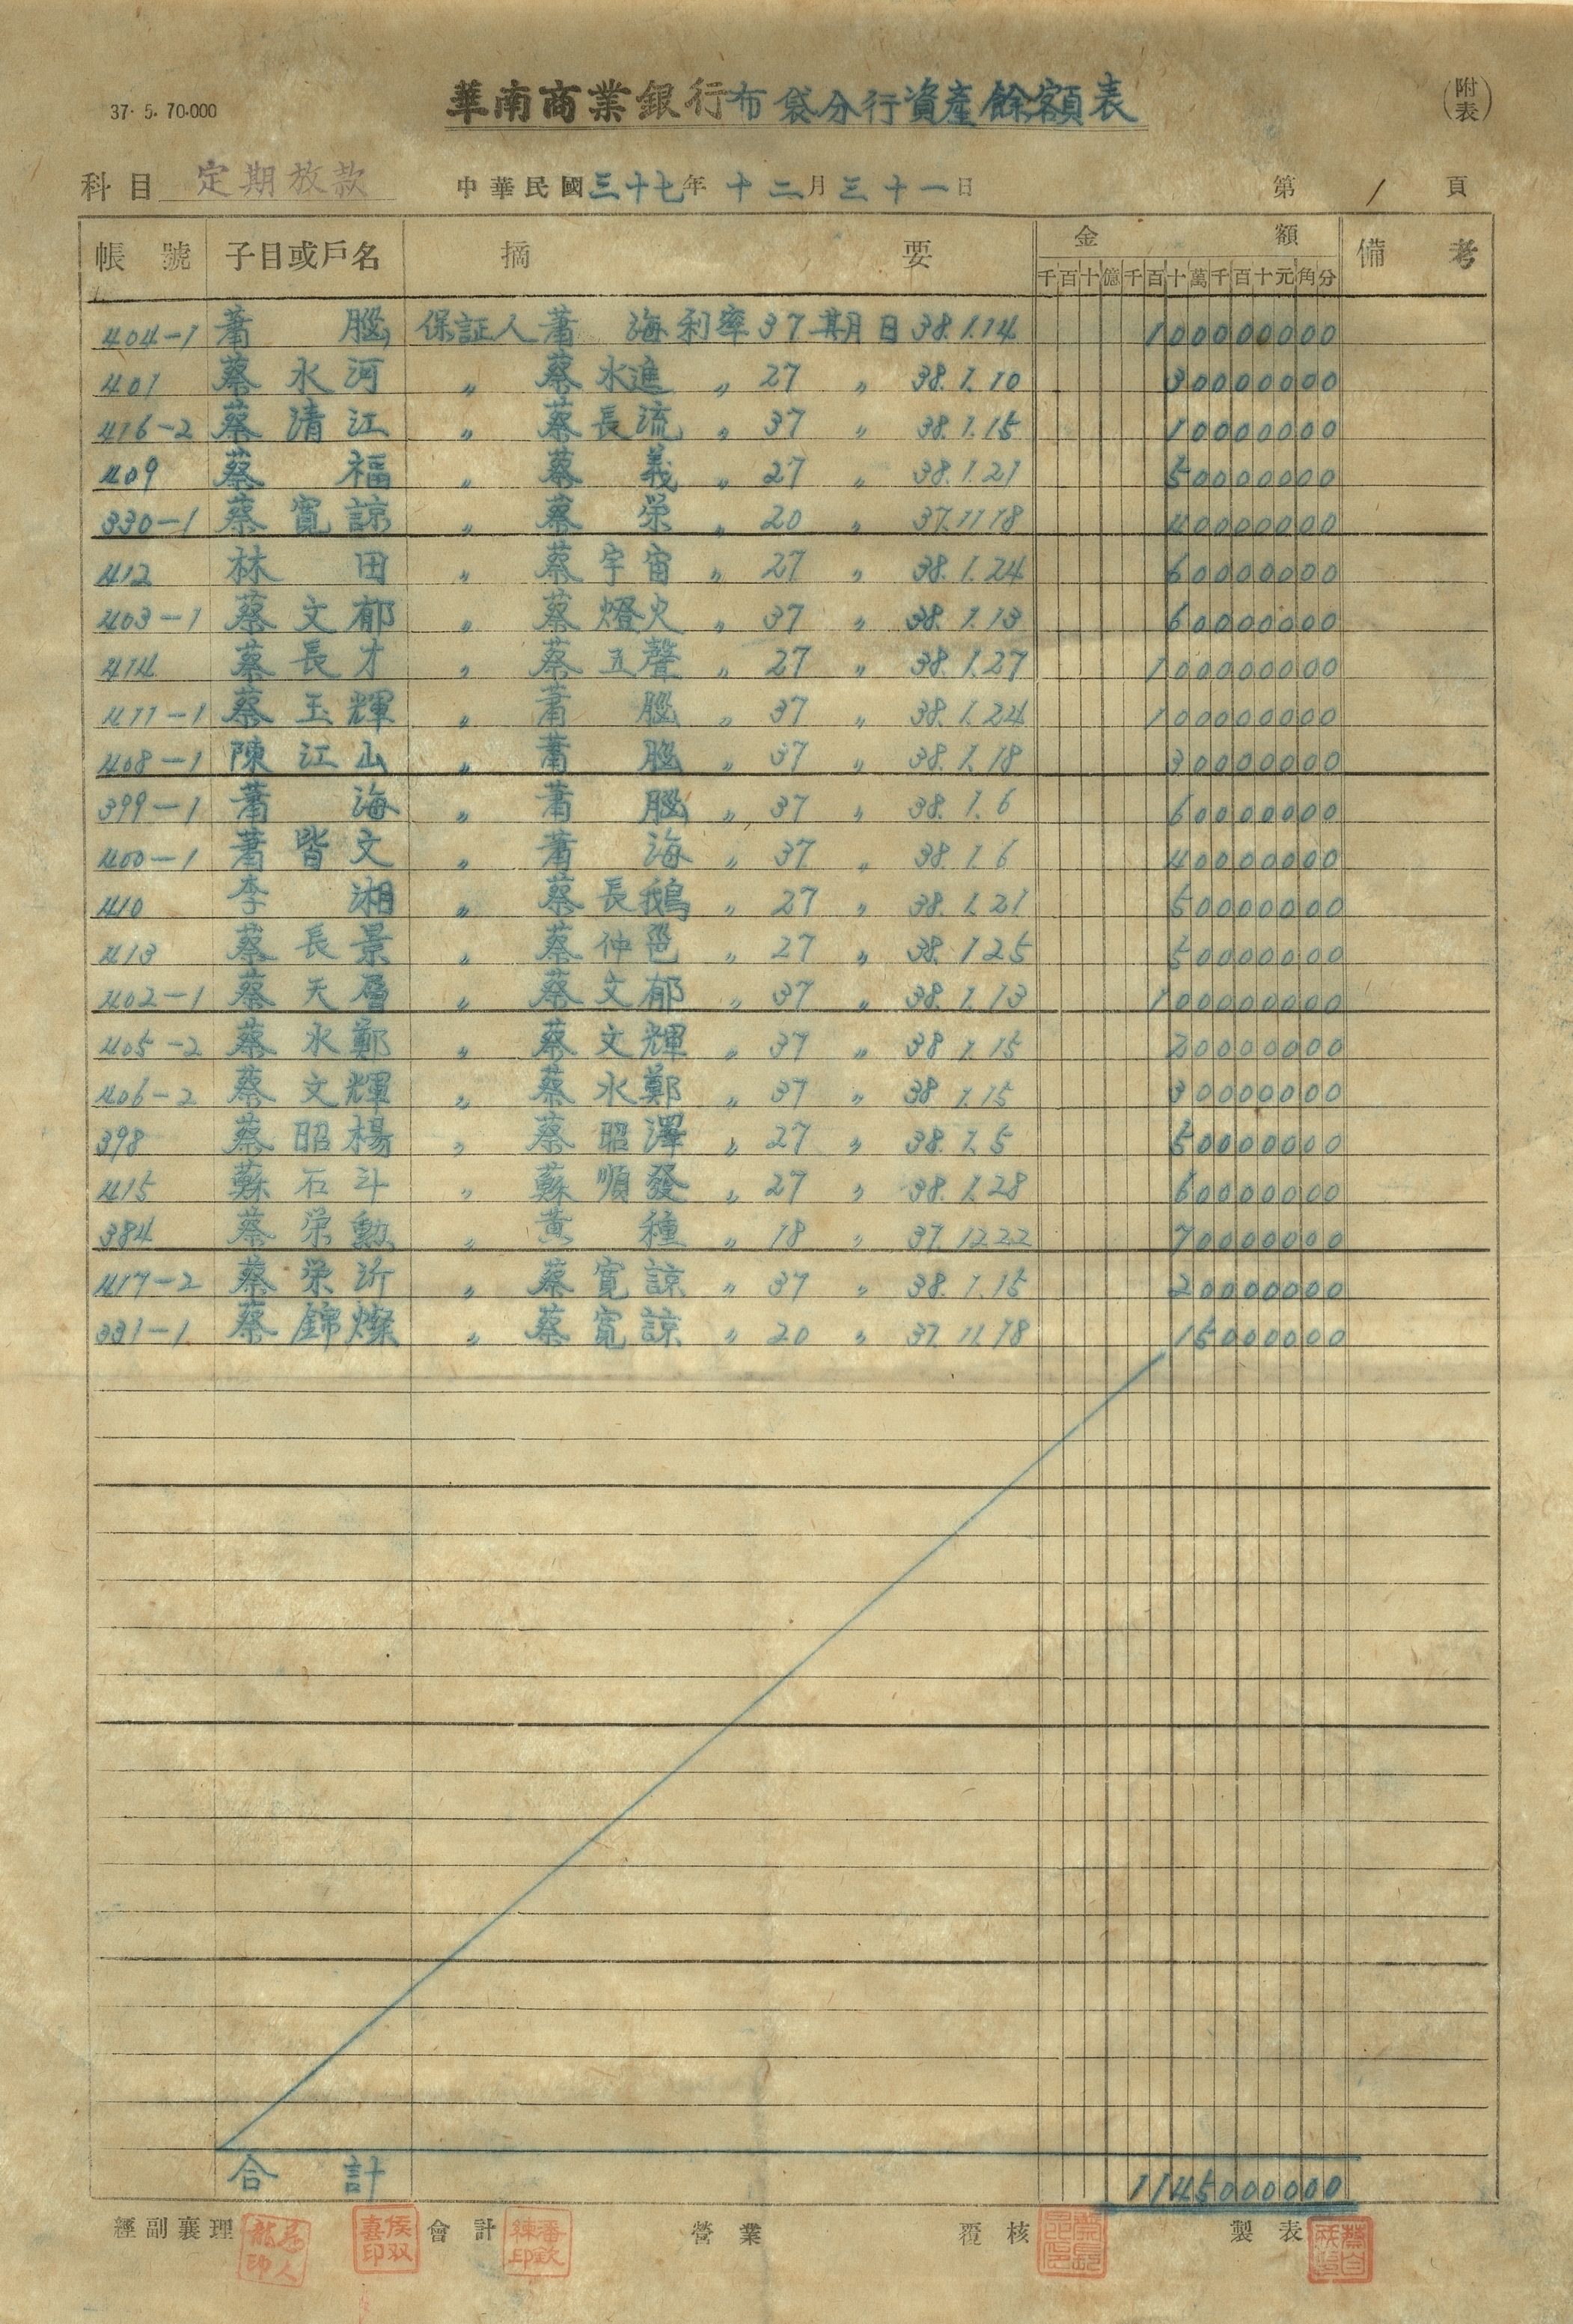 37. 5. 70.000
華南商業銀行布袋分行資產餘額表
(附表)
科目 定期放款 中華民國三十七年十二月三十一日 第 1 頁
帳號 子目或戶名 摘要 金額 備考
千百十億千百十萬千百十元角分
404-1 蕭 腦 保証人 蕭 海 利率 37 期日 38.1.14 100000000
401 蔡水河 〃 蔡水進 〃 27 〃 38.1.10 30000000
416-2 蔡清江 〃 蔡長流 〃 37 〃 38.1.15 10000000
409 蔡 福 〃 蔡 義 〃 27 〃 38.1.21 50000000
330-1 蔡寬諒 〃 蔡 栄 〃 20 〃 37.11.18 40000000
412 林 田 〃 蔡宇宙 〃 27 〃 38.1.24 60000000
403-1 蔡文郁 〃 蔡燈火 〃 37 〃 38.1.13 60000000
414 蔡長才 〃 蔡五聲 〃 27 〃 38.1.27 100000000
411-1 蔡玉輝 〃 蕭 腦 〃 37 〃 38.1.24 100000000
408-1 陳江山 〃 蕭 腦 〃 37 〃 38.1.18 30000000
399-1 蕭 海 〃 蕭 腦 〃 37 〃 38.1.6 60000000
400-1 蕭皆文 〃 蕭 海 〃 37 〃 38.1.6 40000000
410 李 湘 〃 蔡長鵝 〃 27 〃 38.1.21 50000000
413 蔡長景 〃 蔡仲邕 〃 27 〃 38.1.25 50000000
402-1 蔡天層 〃 蔡文郁 〃 37 〃 38.1.13 100000000
405-2 蔡水鄭 〃 蔡文輝 〃 37 〃 38.1.15 20000000
406-2 蔡文輝 〃 蔡水鄭 〃 37 〃 38.1.15 30000000
398 蔡昭楊 〃 蔡昭澤 〃 27 〃 38.1.5 50000000
415 蘇石斗 〃 蘇順發 〃 27 〃 38.1.28 60000000
384 蔡栄勲 〃 黃 種 〃 18 〃 37.12.22 70000000
417-2 蔡栄沂 〃 蔡寬諒 〃 37 〃 38.1.15 20000000
331-1 蔡錦燦 〃 蔡寬諒 〃 20 〃 37.11.18 15000000
合計 1145000000
經副襄理 侯双喜印 會計 潘欽練印 營業 覆核 製表